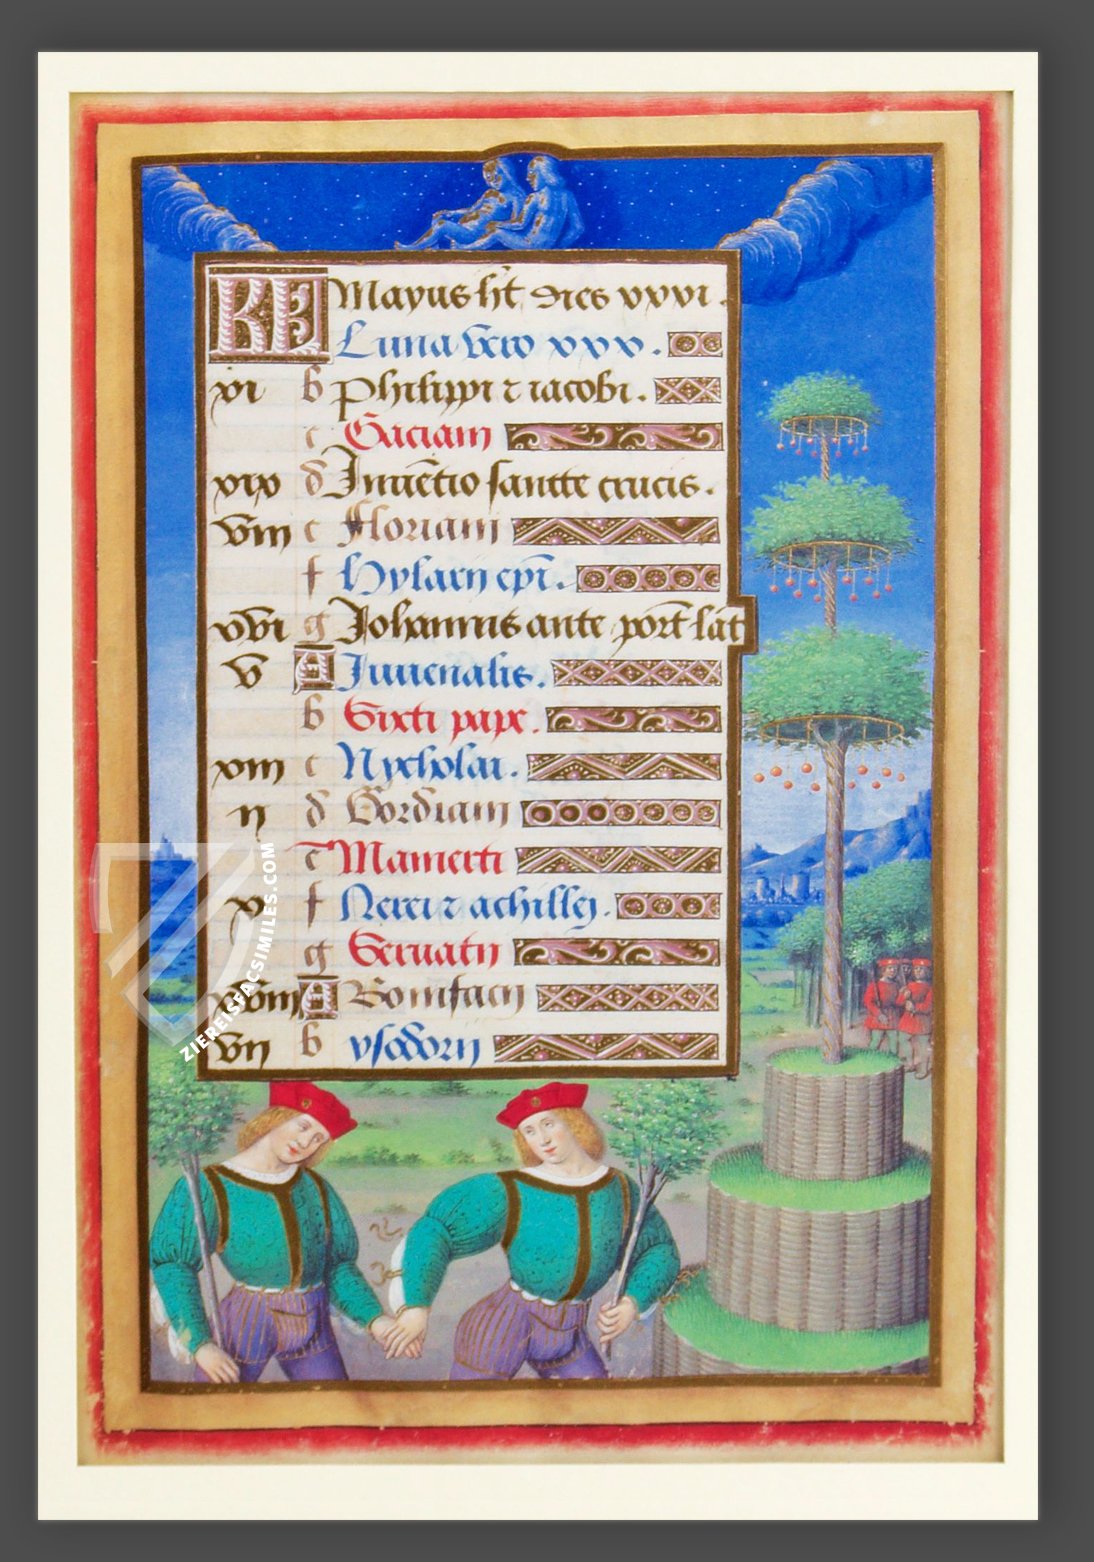 KL Mayus ht dies xxxi.
Luna vero xxx.
xi b Philippi z iacobi.
c Gaciani
xix d Inuētio sancte crucis.
viii e Floriani
f Hylarii epi.
xvi g Johannis ante port lat
v A Iuuenalis.
b Sixti pape.
xiii c Nycholai.
ii d Gordiani
e Mamerti
x f Nerei z achillei.
g Seruatii
xviii A Bonifacii
vii b ysodorii
ZIEREISFACSIMILES.COM